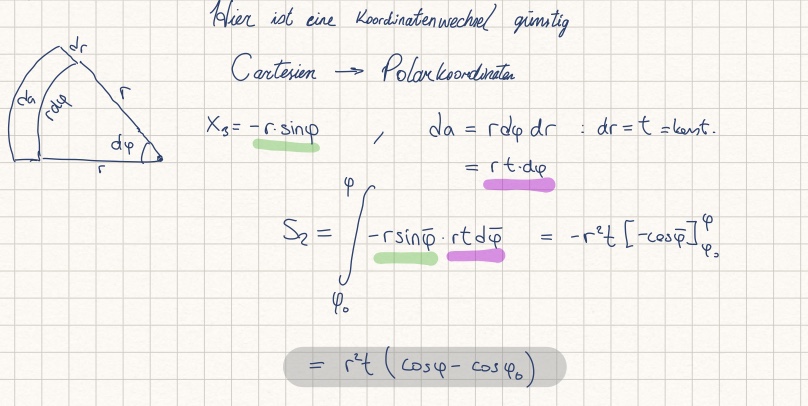 Hier ist eine Koordinatenwechsel günstig
Cartesien → Polarkoordinaten
dr
da
rdφ
r
dφ
r
X₃ = -r·sinφ , da = r dφ dr : dr = t = konst.
= r t·dφ
S₂ = ∫_{φ₀}^{φ} -r sinφ̄ · r t dφ̄ = -r²t [-cosφ̄]_{φ₀}^{φ}
= r²t (cosφ - cosφ₀)